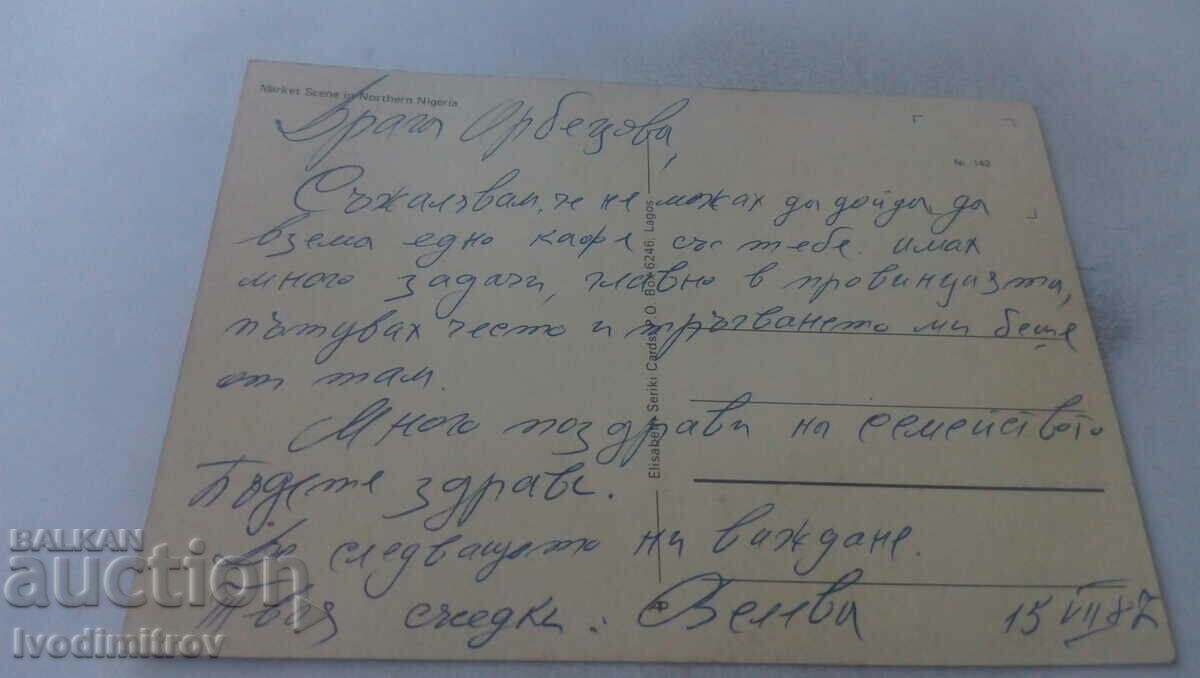 Market Scene in Northern Nigeria
Драга Орбецова,
Nr. 142
Съжалявам, че не можах да дойда да
взема едно кафе със тебе. имах
много задачи, главно в провинцията,
пътувах често и тръгването ми беше
от там.
Много поздрави на семейството
Бъдете здрави.
До следващото ни виждане.
Твоя съседка:
15 VII 87
Elisabeth Seriki Cards, P.O. Box 6246, Lagos
BALKAN
auction
Ivodimitrov